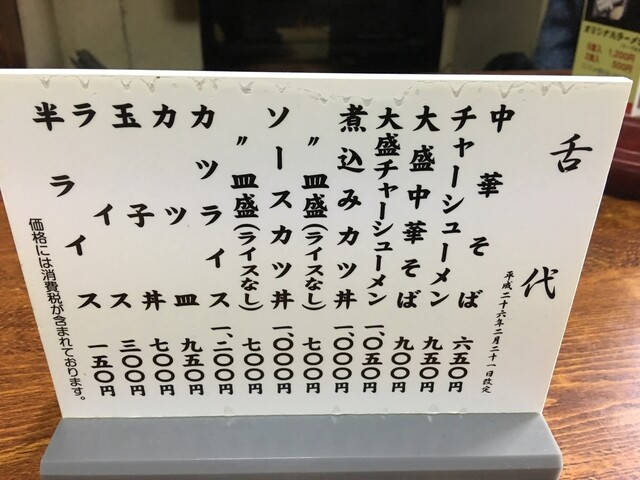 舌代
平成二十六年二月二十一日改定
中華そば 六五〇円
チャーシューメン 九五〇円
大盛中華そば 九〇〇円
大盛チャーシューメン 一、〇五〇円
煮込みカツ丼 一、〇〇〇円
〃皿盛(ライスなし) 七〇〇円
ソースカツ丼 一、〇〇〇円
〃皿盛(ライスなし) 七〇〇円
カツライス 一、二〇〇円
カツ皿 九五〇円
玉子丼 七〇〇円
ライス 三〇〇円
半ライス 一五〇円
価格には消費税が含まれております。
オリジナルラーメン